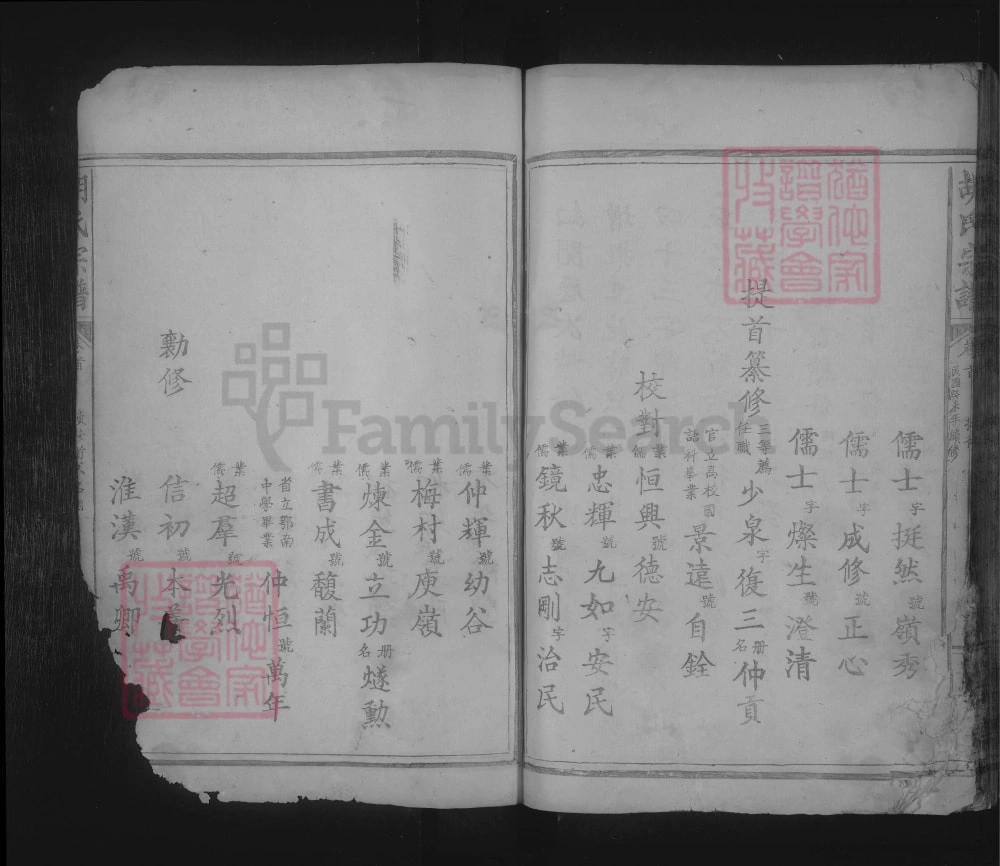 胡氏宗譜
卷首
民國癸未年續修
儒士字挺然嶺秀
儒士字成修號正心
儒士字燦生號澄清
提首纂修三等薦任職少泉字復三冊名仲貢
官立高校國語科畢業景遠號自銓
校對業儒恒興號德安
業儒忠輝號九如字安民
業儒鏡秋號志剛字治民
業儒仲輝號幼谷
業儒梅村號庾嶺
業儒煉金號立功冊名燧勳
業儒書成號馥蘭
省立鄂南中學畢業仲恒號萬年
業儒超羣號光烈
勷修信初號本
淮漢號禹卿
氏宗譜
首
猶他家譜學會收藏
猶他家譜學會收藏
FamilySearch